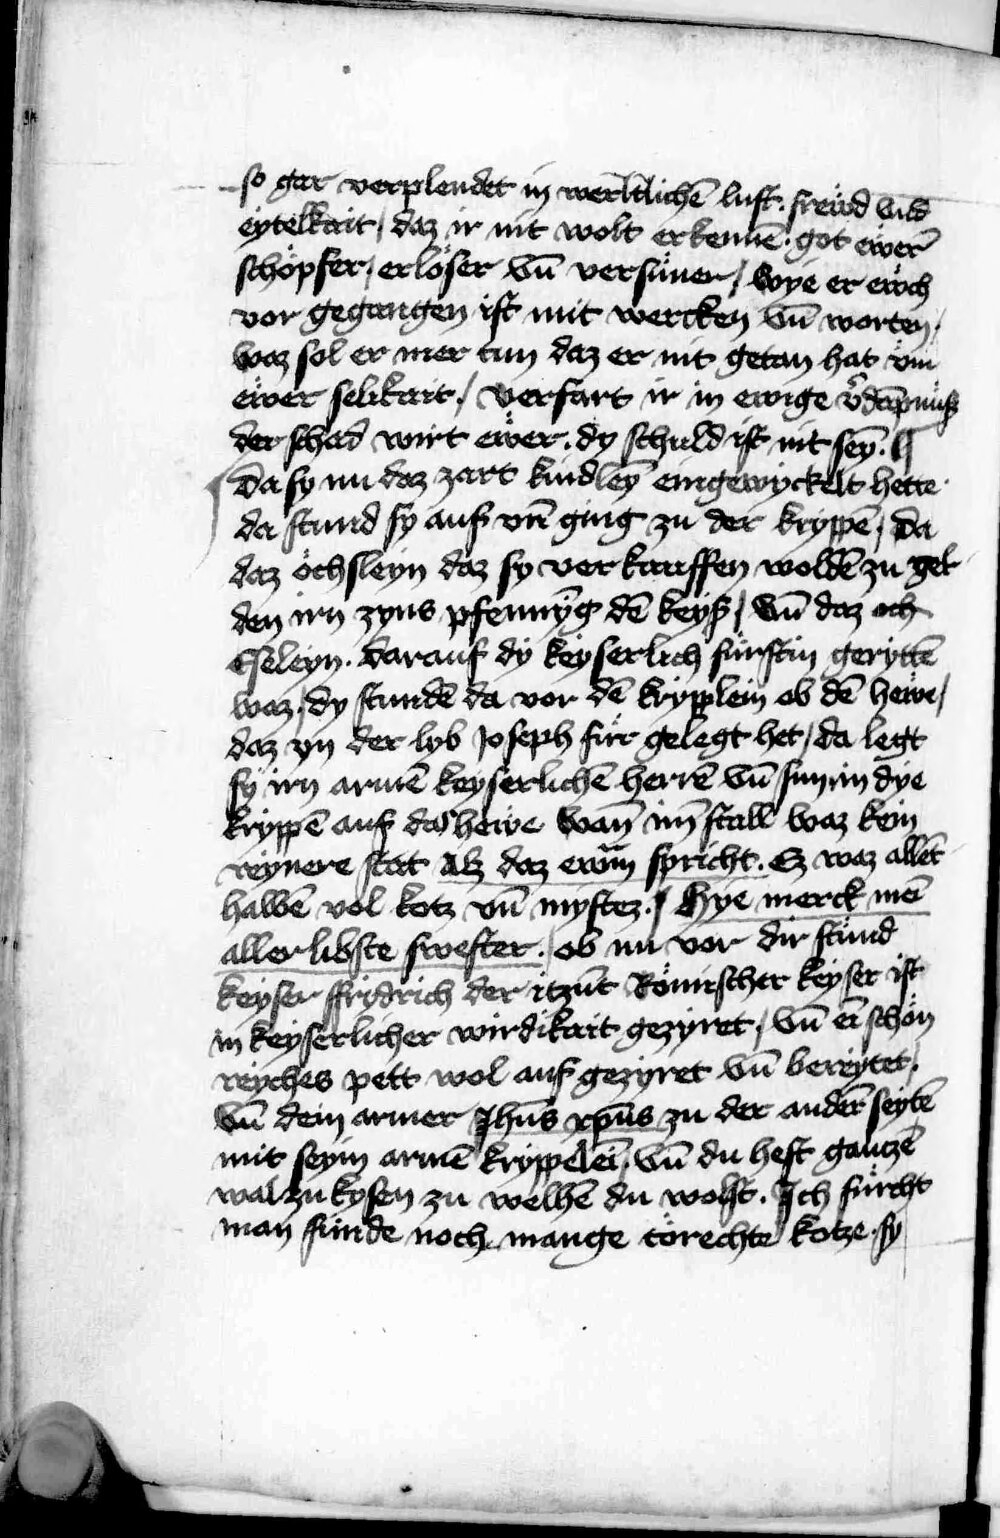 so gar verplendet in werltlichē lust. frewd vnd
eytelkait / daz ir nit wolt erkennē. got ewer̄
schöpfer / erlöser vn̄ versüner / wye er ewch
vor gegangen ist mit wercken vn̄ worten /
waz sol er mer tun daz er nit getan hat vm
ewer selikait / verfart ir in ewige v̾dāpnüß
der schad wirt ewer. dy schuld ist nit sey̅.
Da sy nu daz zart kindley̅ eingewyckelt hette.
da stund sy auf vn̄ ging zu der kryppē / Da
daz öchsleyn daz sy verkauffen woldē zu gel
den irn zyns pfenny̅g dē keyß / vn̄ daz
Eseleyn. darauf dy keyserlich fürstin geryttē
waz / dy stundē da vor dē kripplein ob dē hewe /
daz yn der lyb Joseph für gelegt het / da legt
sy irn armē keyserlichē herrē vn̄ sun in dye
kryppē auf das hewe wan̄ im̄ stall waz kein
reynere stat Alz daz ewm̄ spricht. Ez waz allēt
halbē vol kotz vn̄ mystez. / Hye merck mē
aller libste swester. / ob nu vor dir stünd
keyser ffridrich der itzūt Römischer keyser ist
in keyserlicher wirdikait gezyret / vn̄ eī schön
reyches pett wol auf gezyret vn̄ bereytet /
vn̄ dein armer Jhūs xp̄us zu der ander̄ seytē
mit seym armē krippeleī / vn̄ du hest gantzē
wal zu kysen zu welhē du wolst. Ich fürcht
man fünde noch mange törechte kotze. sy